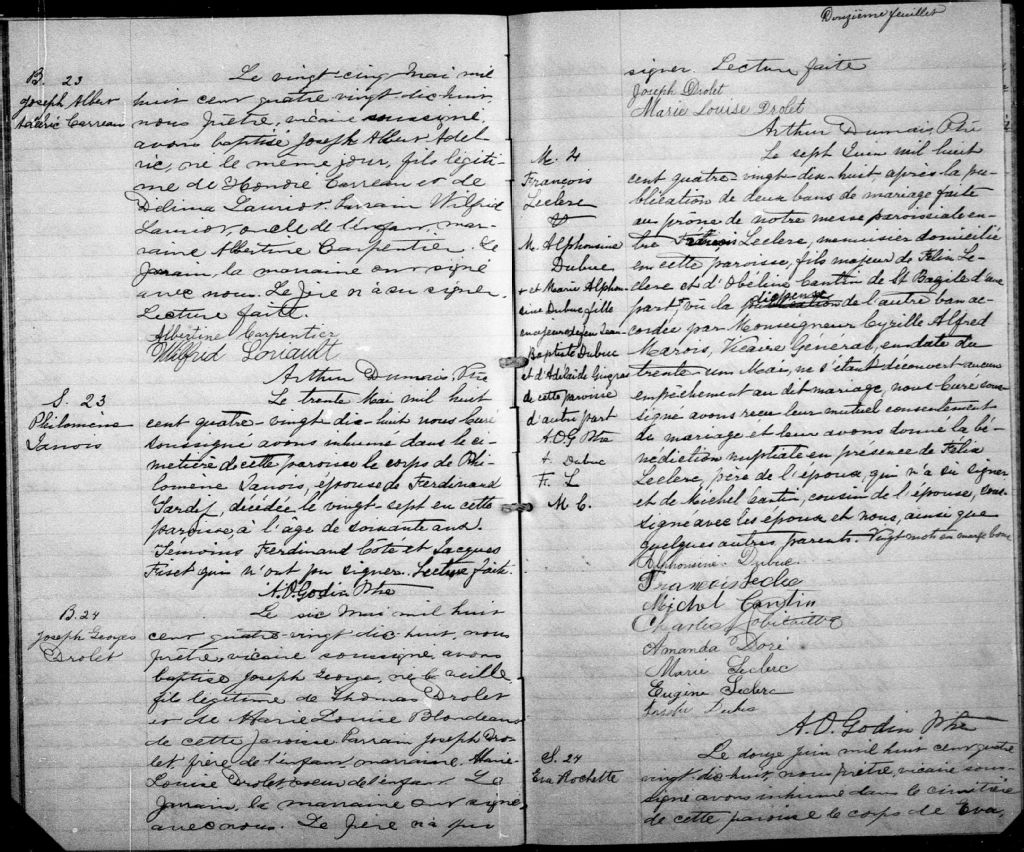 B. 23
Joseph Albert
Adelric Carreau
Le vingt cinq Mai mil
huit cent quatre vingt dix huit,
nous prêtre, vicaire soussigné,
avons baptisé Joseph Albert Adel-
ric, né le même jour, fils légiti-
me de Honoré Carreau et de
Délima Lauriot. Parrain Wilfrid
Lauriot, oncle de l'enfant, mar-
raine Albertine Carpentier. Le
parrain, la marraine ont signé
avec nous. Le père n'a su signer.
Lecture faite.
Albertine Carpentier
Wilfrid Loriault
Arthur Dumais, Ptre
S. 23
Philomène
Vanois
Le trente Mai mil huit
cent quatre-vingt dix-huit nous Curé
soussigné avons inhumé dans le ci-
metière de cette paroisse le corps de Phi-
lomène Vanois, épouse de Ferdinand
Tardif, décédée le vingt-sept en cette
paroisse, à l'age de soixante ans.
Temoins Ferdinand Côté et Jacques
Fiset qui n'ont pu signer. Lecture faite.
A.O. Godin Ptre
B. 24
Joseph Georges
Drolet
Le six Mai mil huit
cent quatre-vingt dix-huit, nous
prêtre, vicaire soussigné, avons
baptisé Joseph George, né la veille,
fils légitime de Thomas Drolet
et de Marie Louise Blondeau
de cette paroisse Parrain Joseph Dro-
let, frère de l'enfant, marraine, Marie-
Louise Drolet, soeur de l'enfant. Le
parrain, la marraine ont signé
avec nous. Le père n'a pu
Douzième feuillet
signer. Lecture faite
Joseph Drolet
Marie Louise Drolet
Arthur Dumais, Ptre
M. 4
François
Leclerc
&
M. Alphonsine
Dubuc
+ et Marie Alphon-
sine Dubuc, fille
majeure de feu Jean
Baptiste Dubuc
et d'Adelaïde Gingras
de cette paroisse
d'autre part
A.O.G Ptre
A. Dubuc
F. L
M C.
Le sept Juin mil huit
cent quatre-vingt-dix-huit après la pu-
blication de deux bans de mariage faite
au prône de notre messe paroissiale en-
tre François Leclerc, menuisier domicilié
en cette paroisse, fils majeur de Félix Le-
clerc et d'Obéline Cantin de St Bazile d'une
part +, vu la dispense de l'autre ban ac-
cordée par Monseigneur Cyrille Alfred
Marois, Vicaire General, en date du
trente-un Mai, ne s'étant découvert aucun
empêchement au dit mariage, nous Curé sous-
signé avons reçu leur mutuel consentement
du mariage et leur avons donné la bé-
nediction nuptiale en présence de Félix
Leclerc, père de l'époux, qui n'a su signer
et de Michel Cantin, cousin de l'épouse, sous-
signé avec les époux et nous, ainsi que
quelques autres parents. Vingt mots en marge bons
Alphonsine Dubuc
François Leclerc
Michel Cantin
Amanda Doré
Marie Leclerc
Eugène Leclerc
A.O. Godin Ptre
S. 24
Eva Rochette
Le douze juin mil huit cent quatre
vingt dix-huit, nous prêtre, vicaire sous-
signé avons inhumé dans le cimetière
de cette paroisse le corps de Eva,